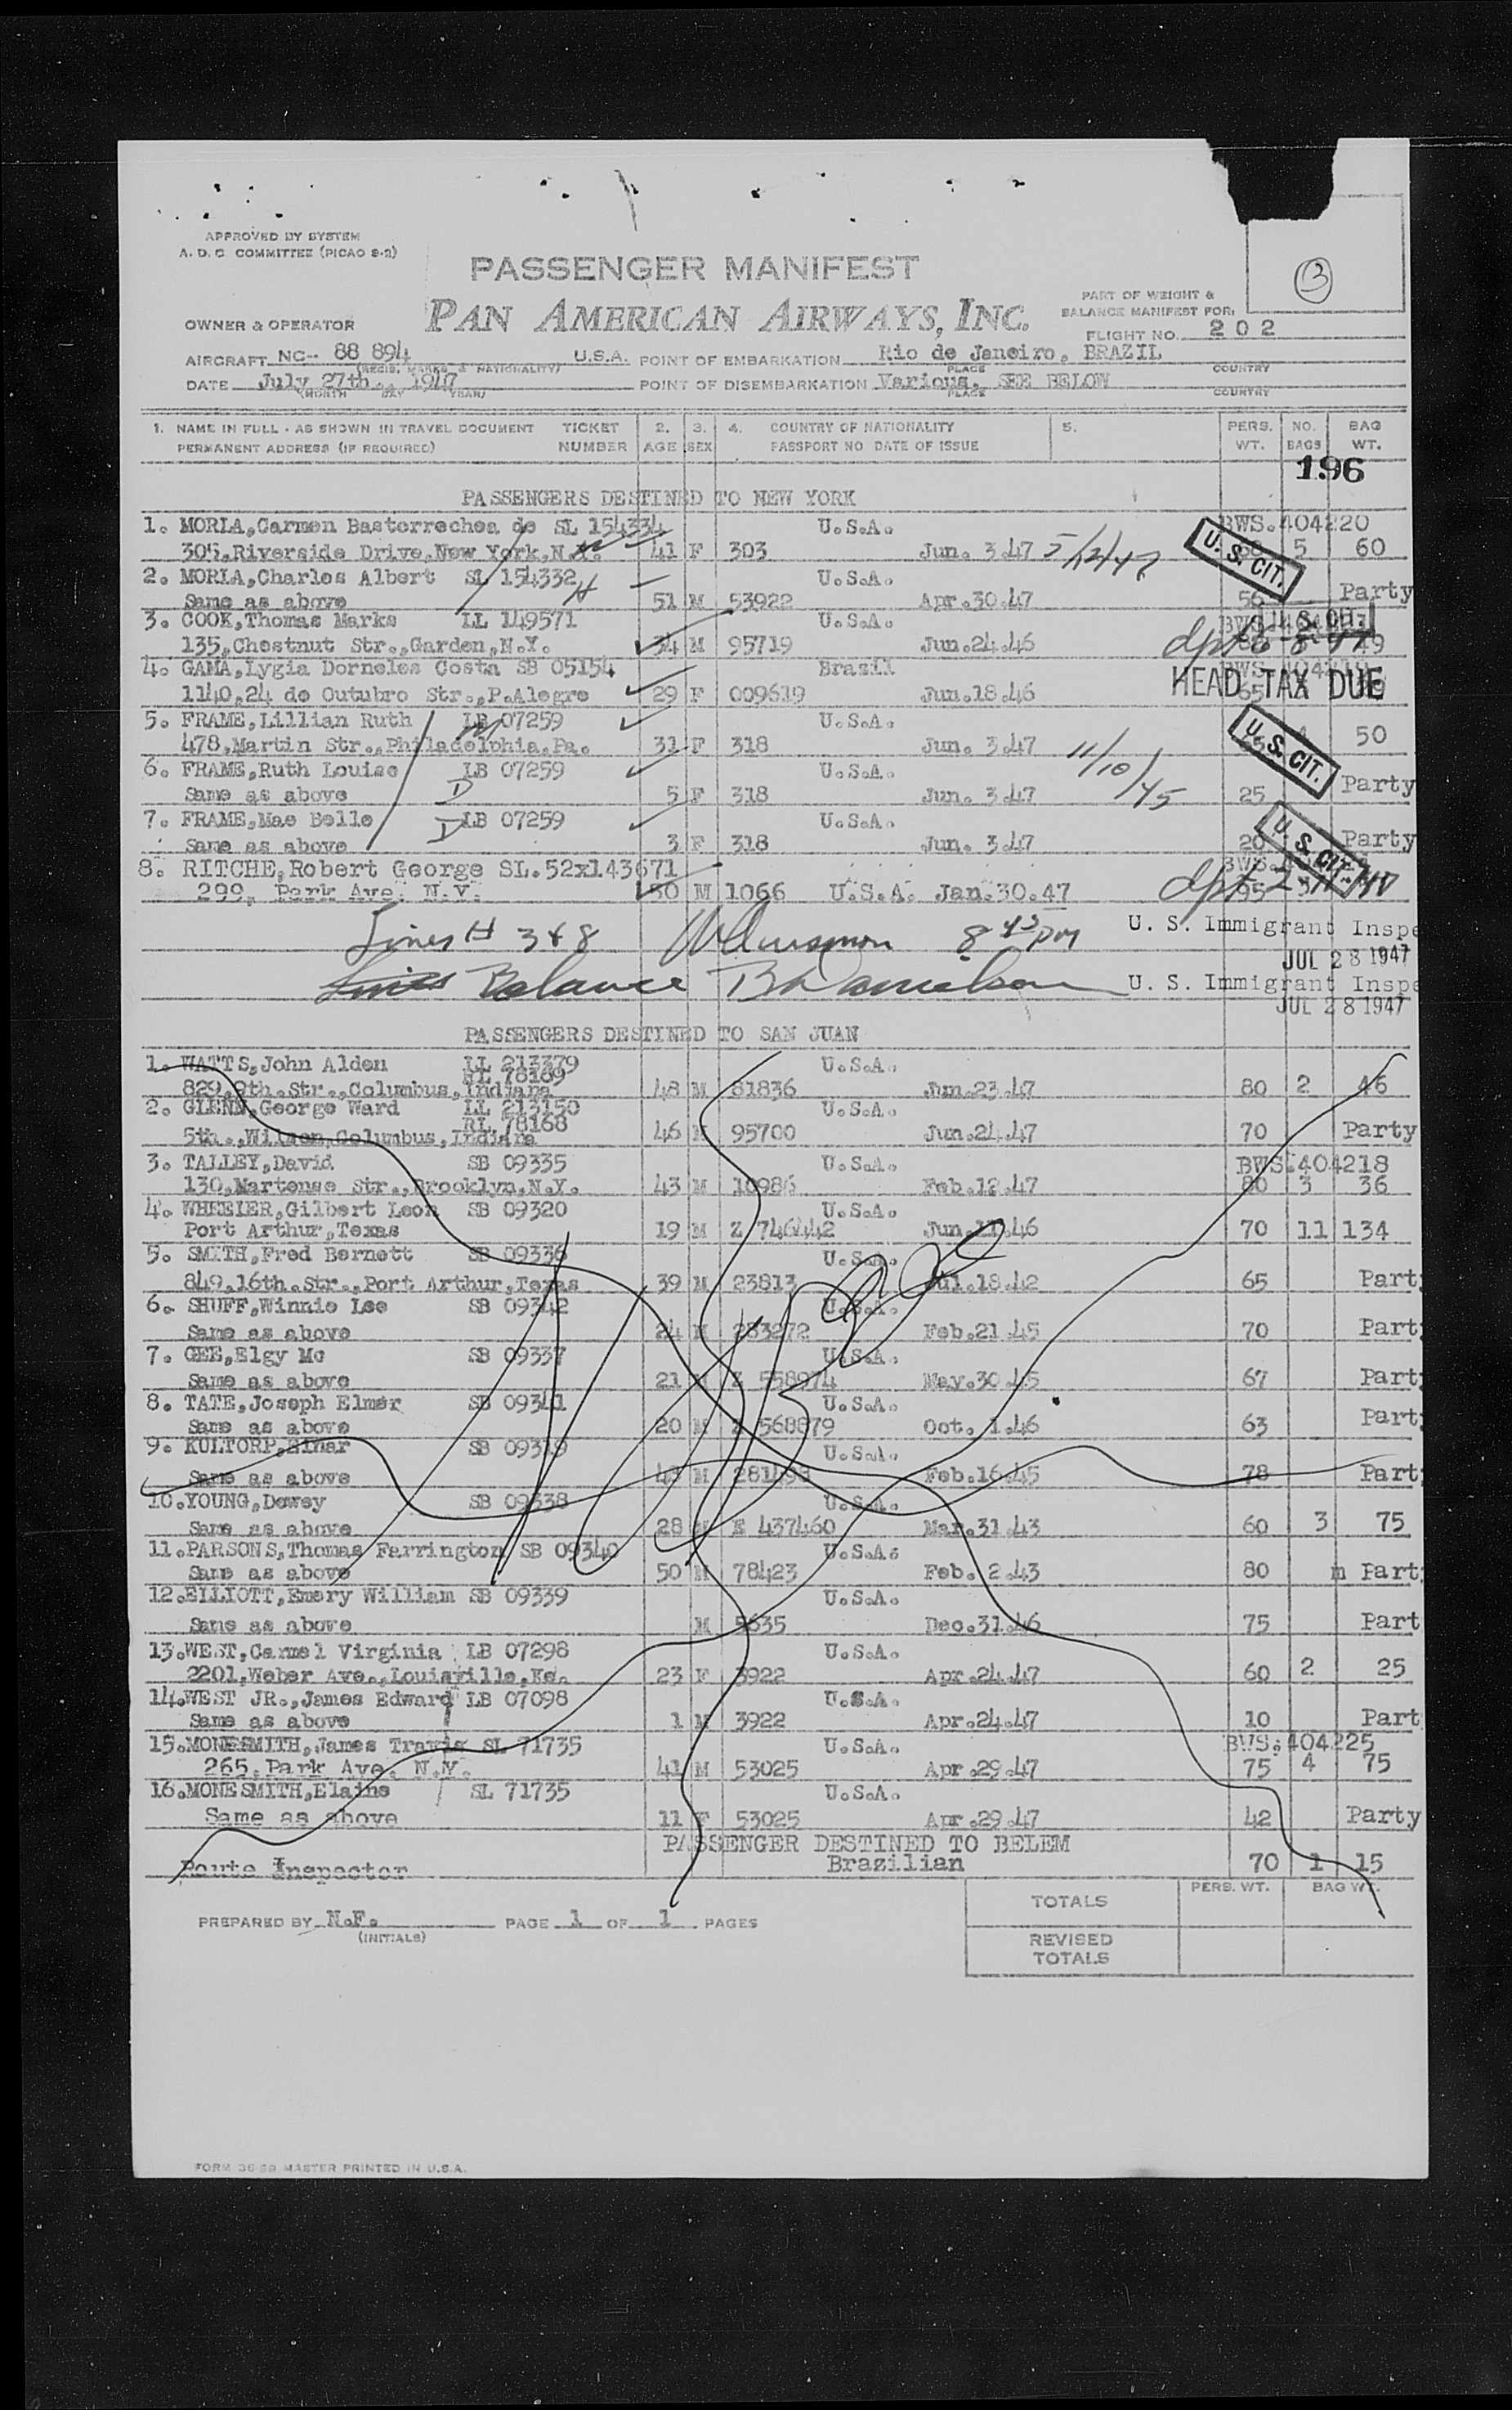 APPROVED BY SYSTEM
A. D. C COMMITTEE (PICAO 9-2)
PASSENGER MANIFEST
PAN AMERICAN AIRWAYS, INC.
3
PART OF WEIGHT &
BALANCE MANIFEST FOR:
OWNER & OPERATOR
FLIGHT NO. 202
AIRCRAFT NC-- 88 894 U.S.A. POINT OF EMBARKATION Rio de Janeiro, BRAZIL
(REGIS. MARKS & NATIONALITY) PLACE COUNTRY
DATE July 27th., 1947 POINT OF DISEMBARKATION Various. SEE BELOW
(MONTH DAY YEAR) PLACE COUNTRY
1. NAME IN FULL - AS SHOWN IN TRAVEL DOCUMENT TICKET 2. 3. 4. COUNTRY OF NATIONALITY 5. PERS. NO. BAG
PERMANENT ADDRESS (IF REQUIRED) NUMBER AGE SEX PASSPORT NO DATE OF ISSUE WT. BAGS WT.
196
PASSENGERS DESTINED TO NEW YORK
1. MORLA,Carmen Bastorrechea de SL 154334 U.S.A. BWS.404220
305,Riverside Drive,New York,N.Y. 41 F 303 Jun. 3.47 5/12/47 5 60
U. S. CIT.
2. MORLA,Charles Albert SL 154332 U.S.A.
Same as above 51 M 53922 Apr.30.47 56 Party
3. COOK,Thomas Marks LL 149571 U.S.A.
135,Chestnut Str.,Garden,N.Y. 34 M 95719 Jun.24.46
4. GAMA,Lygia Dorneles Costa SB 05154 Brazil
1140,24 de Outubro Str.,P.Alegre 29 F 009619 Jun.18.46
HEAD TAX DUE
5. FRAME,Lillian Ruth LB 07259 U.S.A.
478,Martin Str.,Philadelphia,Pa. 31 F 318 Jun. 3.47 11/10/45 50
U. S. CIT.
6. FRAME,Ruth Louise LB 07259 U.S.A.
Same as above D 5 F 318 Jun. 3.47 25 Party
7. FRAME,Mae Belle D LB 07259 U.S.A.
Same as above 3 F 318 Jun. 3.47 20 Party
U. S. CIT.
8. RITCHE,Robert George SL.52x143671
299, Park Ave. N.Y. 50 M 1066 U.S.A. Jan.30.47 95
Lines # 3 & 8 8 43 pm U. S. Immigrant Inspe
JUL 28 1947
Lines Balance U. S. Immigrant Inspe
JUL 28 1947
PASSENGERS DESTINED TO SAN JUAN
1. WATTS,John Alden LL 213379 U.S.A.
RL 78169
829,9th.Str.,Columbus,Indiana 48 M 81836 Jun.23.47 80 2 46
2. GLENN,George Ward LL 213150 U.S.A.
RL 78168
5th.,Wilson,Columbus,Indiana 46 M 95700 Jun.24.47 70 Party
3. TALLEY,David SB 09335 U.S.A. BWS.404218
130,Martense Str.,Brooklyn,N.Y. 43 M 10986 Feb.12.47 80 3 36
4. WHEELER,Gilbert Leon SB 09320 U.S.A.
Port Arthur,Texas 19 M Z 746442 46 70 11 134
5. SMITH,Fred Bernett SB 09336 U.S.A.
849,16th.Str.,Port Arthur,Texas 39 M 23813 Jul.18.42 65 Part
6. SHUFF,Winnie Lee SB 09342 U.S.A.
Same as above 24 M 283272 Feb.21.45 70 Part
7. GEE,Elgy Mc SB 09337 U.S.A.
Same as above 21 M Z 558974 May.30.45 67 Part
8. TATE,Joseph Elmer SB 09341 U.S.A.
Same as above 20 M Z 568879 Oct. 1.46 63 Part
9. KULTORP,Einar SB 09319 U.S.A.
Same as above 43 M Feb.16.45 78 Part
10.YOUNG,Dewey SB 09338 U.S.A.
Same as above 28 M E 437460 Mar.31.43 60 3 75
11.PARSONS,Thomas Farrington SB 09340 U.S.A.
Same as above 50 M 78423 Feb. 2.43 80 m Part
12.ELLIOTT,Emery William SB 09339 U.S.A.
Same as above M 5635 Dec.31.46 75 Part
13.WEST,Carmel Virginia LB 07298 U.S.A.
2201,Weber Ave.,Louisville,Ke. 23 F 3922 Apr.24.47 60 2 25
14.WEST JR.,James Edward LB 07098 U.S.A.
Same as above 1 M 3922 Apr.24.47 10 Part
15.MONESMITH,James Travis SL 71735 U.S.A. BWS.404225
265, Park Ave. N.Y. 41 M 53025 Apr.29.47 75 4 75
16.MONESMITH,Elaine SL 71735 U.S.A.
Same as above 11 F 53025 Apr.29.47 42 Party
PASSENGER DESTINED TO BELEM
Route Inspector Brazilian 70 1 15
TOTALS PERS. WT. BAG WT.
PREPARED BY N.F. PAGE 1 OF 1 PAGES
(INITIALS)
REVISED
TOTALS
FORM 36-89 MASTER PRINTED IN U.S.A.